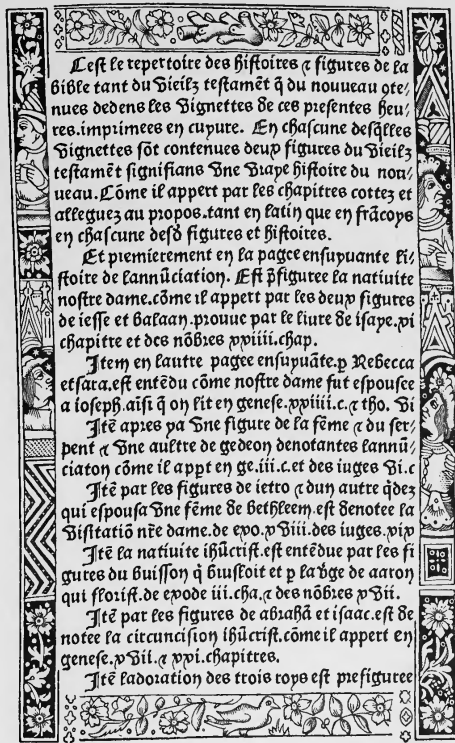 Cest le repertoire des histoires ⁊ figures de la
bible tant du vieilz testamẽt q̃ du nouueau ꝯte-
nues dedens les vignettes de ces presentes heu-
res.imprimees en cuyure. En chascune desq̃lles
vignettes sõt contenues deux figures du vieilz
testamẽt signifians vne vraye histoire du nou-
ueau. Cõme il appert par les chapitres cottez et
alleguez au propos.tant en latin que en frãcoys
en chascune desd̃ figures et histoires.
Et premierement en la pagee ensuyuante li-
stoire de lannũciation. Est p̃figuree la natiuite
nostre dame.cõme il appert par les deux figures
de iesse et balaan.prouue par le liure de isaye.xi
chapitre et des nõbres xxiiii.chap.
Item en lautre pagee ensuyuãte.ꝑ Rebecca
et sara.est entẽdu cõme nostre dame fut espousee
a ioseph.aisi q̃ on lit en genese.xxiiii.c.⁊ tho. vi
Itẽ apres ya vne figure de la fẽme ⁊ du ser-
pent ⁊ vne aultre de gedeon denotantes lannũ-
ciaton cõme il appt en ge.iii.c.et des iuges vi.c
Itẽ par les figures de ietro ⁊ dun autre q̃dez
qui espousa vne fẽme de bethleem.est denotee la
visitatiõ nr̃e dame.de exo.xviii.des iuges.xix
Itẽ la natiuite ihũcrist.est entẽdue par les fi
gures du buisson q̃ brusloit et ꝑ la v̾ge de aaron
qui florist.de exode iii.cha.⁊ des nõbres xvii.
Itẽ par les figures de abrahã et isaac.est de
notee la circuncision ihũcrist.cõme il appert en
genese.xvii.⁊ xxi.chapitres.
Itẽ ladoration des trois roys est prefiguree